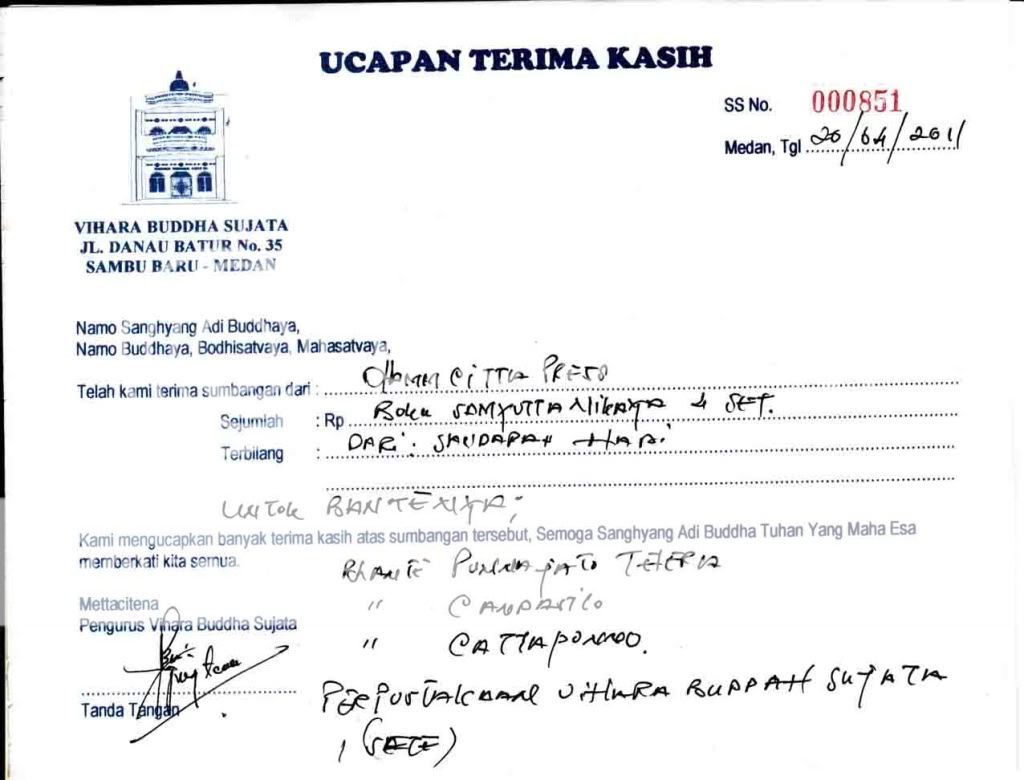 UCAPAN TERIMA KASIH
SS No. 000851
Medan, Tgl 20/04/2011
VIHARA BUDDHA SUJATA
JL. DANAU BATUR No. 35
SAMBU BARU - MEDAN
Namo Sanghyang Adi Buddhaya,
Namo Buddhaya, Bodhisatvaya, Mahasatvaya,
Telah kami terima sumbangan dari : CITTA PRESS
Sejumlah : Rp Buku SAMYUTTA NIKAYA 4 SET.
Terbilang : DARI : SAUDARAH HARI
UNTUK
Kami mengucapkan banyak terima kasih atas sumbangan tersebut, Semoga Sanghyang Adi Buddha Tuhan Yang Maha Esa
memberkati kita semua.
BHANTE
Mettacitena
"
Pengurus Vihara Buddha Sujata
"
PERPUSTAKAAN VIHARA BUDDAH SUJATA
Tanda Tangan
1 (SETE)